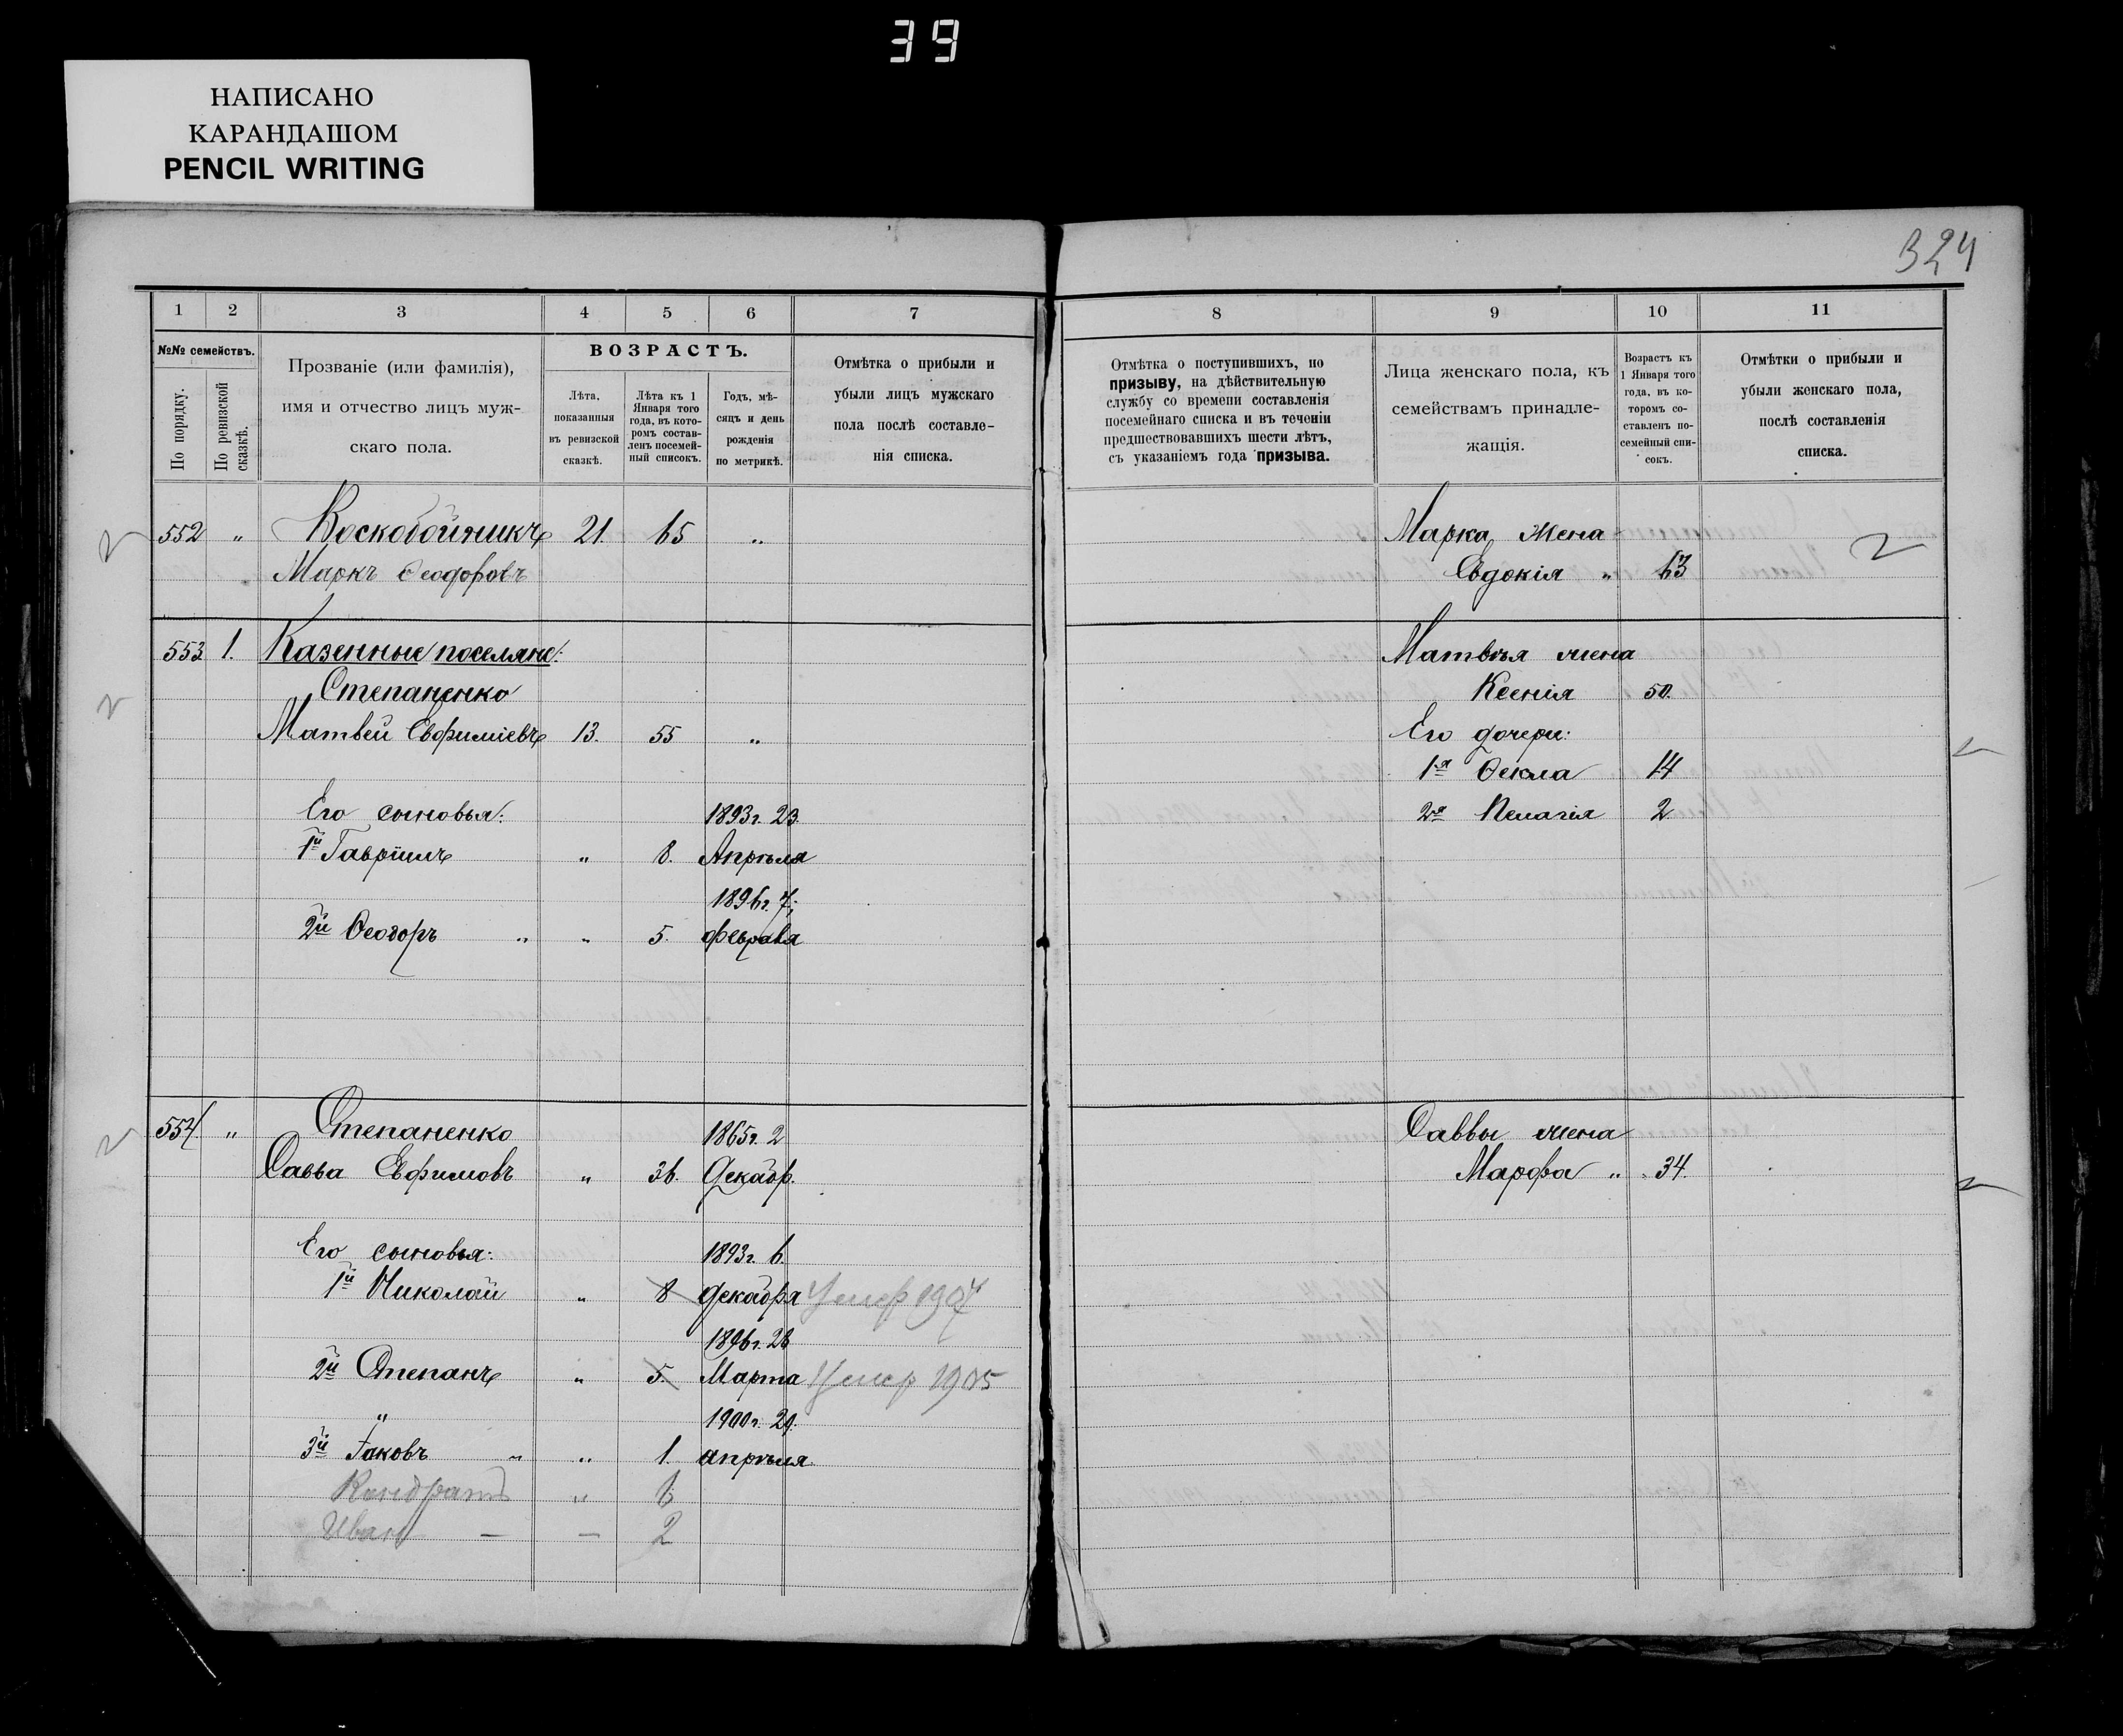 39
НАПИСАНО
КАРАНДАШОМ
PENCIL WRITING
324
1 2 3 4 5 6 7 8 9 10 11
№№ семействъ.
По порядку.
По ревизской сказкѣ.
Прозваніе (или фамилія),
имя и отчество лицъ муж-
скаго пола.
ВОЗРАСТЪ.
Лѣта,
показанныя
въ ревизской
сказкѣ.
Лѣта къ 1
Января того
года, въ кото-
ромъ состав-
ленъ посемей-
ный списокъ.
Годъ, мѣ-
сяцъ и день
рожденія
по метрикѣ.
Отмѣтка о прибыли и
убыли лицъ мужскаго
пола послѣ составле-
нія списка.
Отмѣтка о поступившихъ, по
призыву, на дѣйствительную
службу со времени составленія
посемейнаго списка и въ теченіи
предшествовавшихъ шести лѣтъ,
съ указаніемъ года призыва.
Лица женскаго пола, къ
семействамъ принадле-
жащія.
Возрастъ къ
1 Января того
года, въ ко-
торомъ со-
ставленъ по-
семейный спи-
сокъ.
Отмѣтки о прибыли и
убыли женскаго пола,
послѣ составленія
списка.
552 " Воскобойникъ 21 65 "
Маркъ Ѳеодоровъ
Марка жена
Евдокія " 63
553 1. Казенные поселяне:
Степаненко
Матвей Евфиміевъ 13. 55 "
Его сыновья: 1893г. 23.
1й Гавріилъ " 8. Апрѣля
1896г. 7;
2й Ѳеодоръ " " 5. февраля
Матвѣя жена
Ксенія 50.
Его дочери:
1я Ѳекла 14
2я Пелагія 2
554. " Степаненко 1865г. 2
Савва Евфимовъ " 36. Декабр.
Его сыновья: 1893г. 6.
1й Николай " 8 декабря Умер 1907
1896г. 26
2й Степанъ " 5. Марта Умер 1905
" 1900г. 29.
3й Іаковъ " " 1. апрѣля
Кондратъ " 6
Иванъ — — 2
Саввы жена
Марфа " 34.